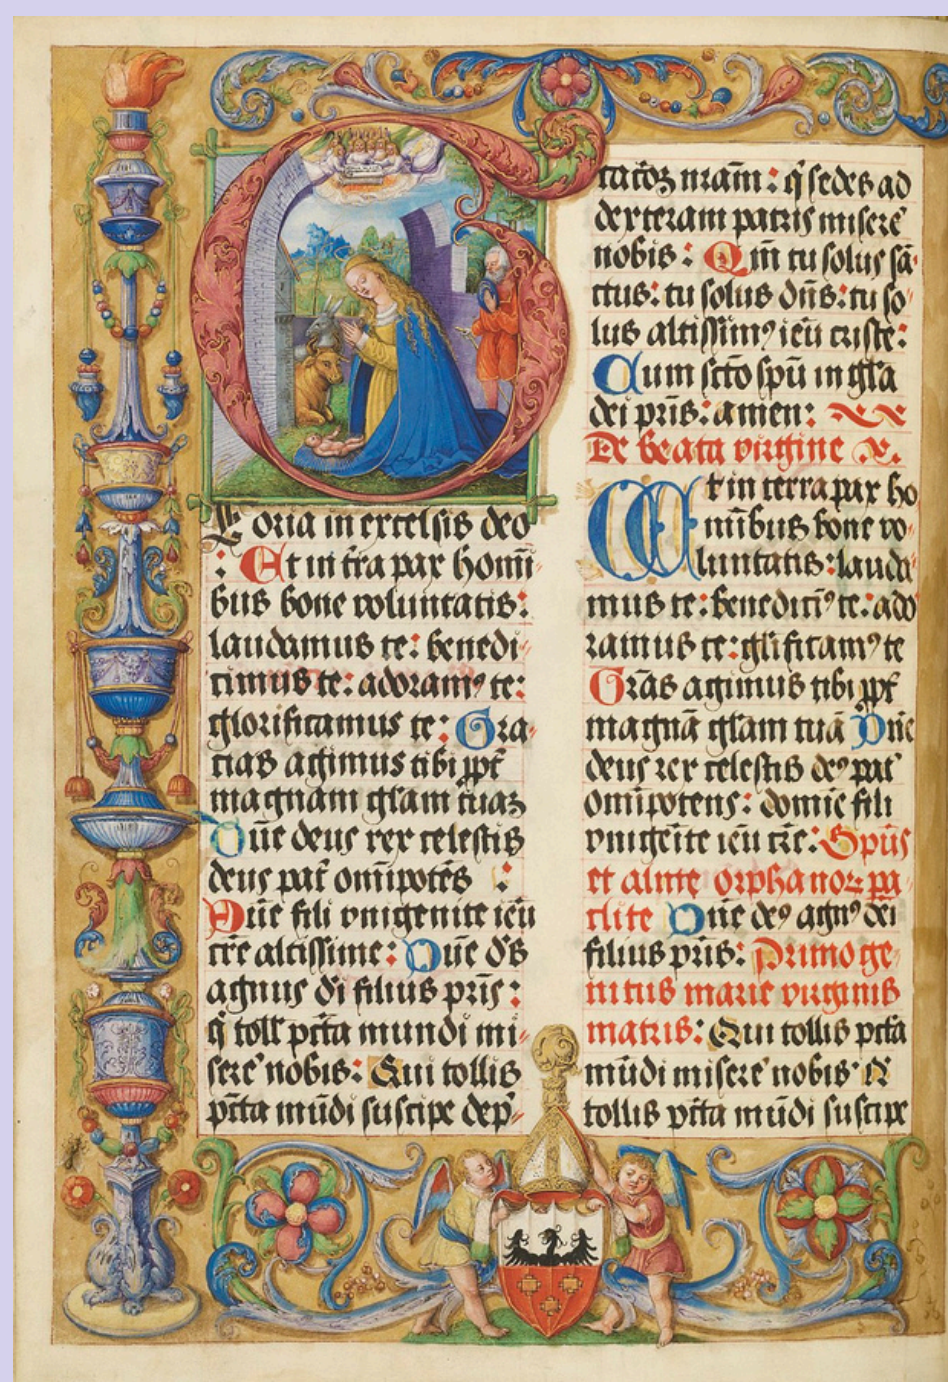 Gloria in excelsis deo
: Et in tr̄a pax homī-
bus bone voluntatis:
laudamus te: benedi-
cimus te: adoramꝰ te:
glorificamus te: Gra-
cias agimus tibi ꝓpt̄
magnam gl̄am tuaꝫ
Dn̄e deus rex celestis
deus pat̄ omīpotēs :
Dn̄e fili vnigenite ieū
cr̄e altissime: Dn̄e ds̄
agnus di filius prīs:
q̄ toll' pctā mundi mi-
sere' nobis: Qui tollis
pctā mūdi suscipe dep'-
catōꝫ nr̄am: q̄ sedes ad
dexteram patris misere'
nobis: Qm̄ tu solus sā-
ctus: tu solus dn̄s: tu so-
lus altissimꝰ ieū criste:
Cum sct̄o sp̄u in gl̄a
dei pr̄is: amen:
De beata virgine
Et in terra pax ho
mībus bone vo-
luntatis: lauda'
mus te: benedicīꝰ te: ado
ramus te: gl̄ificamꝰ te
Grās agimus tibi ꝓpt̄
magnā gl̄am tuā Dn̄e
deus rex celestis deꝰ pat'
omīpotens: domīe fili
vnigēite ieū cr̄e: Spūs
et alme orphanoꝝ pa-
clite Dn̄e deꝰ agnꝰ dei
filius pr̄is: Primoge-
nitus marie virginis
matris: Qui tollis pctā
mūdi misere' nobis· Q̄
tollis pctā mūdi suscipe